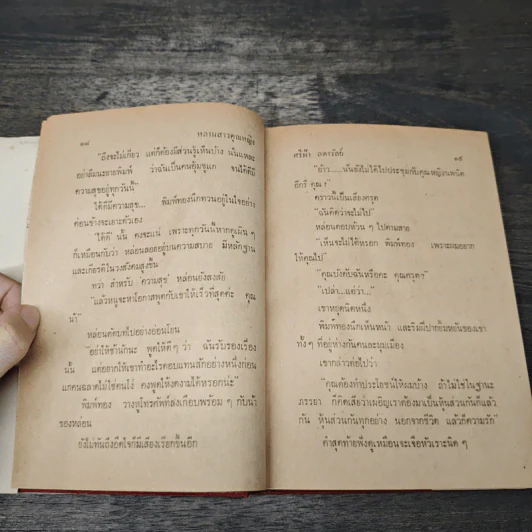 ๑๘ หลานสาวคุณหญิง
"ถึงจะไม่เกี่ยว แต่ก็ต้องมีส่วนรู้เห็นบ้าง นั่นแหละ
อย่าลืมนะยายพิมพ์ ว่าฉันเป็นคนอุ้มชูแก จนได้ดีมี
ความสุขอยู่ทุกวันนี้"
ได้ดีมีความสุข... พิมพ์ทองนึกทวนอยู่ในใจอย่าง
ค่อนข้างจะเยาะตัวเอง
ได้ดี นั้น คงจะแน่ เพราะทุกวันนี้หากดูเผิน ๆ
ก็เหมือนกับว่า หล่อนลอยอยู่บนความสบาย มีหลักฐาน
และเกียรติในวงสังคมสูงขึ้น
ทว่า สำหรับ 'ความสุข' หล่อนยังสงสัย
"แล้วหนูจะหาโอกาสพูดกับเขาให้เร็วที่สุดค่ะ คุณ
น้า"
หล่อนตัดบทไปอย่างอ่อนโยน
"อย่าให้ช้านักนะ พูดให้ดีๆ ว่า ฉันรับรองเรื่อง
นั้น แต่อยากให้เขาทำอะไรตอบแทนสักอย่างหนึ่งก่อน
แกคนฉลาดไม่ใช่คนโง่ คงพูดให้งดงามได้หรอกนะ"
พิมพ์ทอง วางหูโทรศัพท์ลงเกือบพร้อม ๆ กับน้า
ของหล่อน
ยังไม่ทันถึงอึดใจก็มีเสียงเรียกขึ้นอีก
ศรีฟ้า ลดาวัลย์ ๑๙
"อ้าว.....นั่นยังไม่ได้ไปประชุมกับคุณหญิงพนิต
อีกรึ คุณ?"
คราวนี้เป็นเสียงครุฑ
"ฉันคิดว่าจะไม่ไป"
หล่อนตอบห้วน ๆ ไปตามสาย
"เห็นจะไม่ได้หรอก พิมพ์ทอง เพราะผมอยาก
ให้คุณไป"
"คุณบังคับฉันหรือคะ คุณครุฑ?"
"เปล่า...แย่ว่า..."
เขาหยุดนิดหนึ่ง
พิมพ์ทองนึกเห็นหน้า และริมฝีปากยิ้มหยันของเขา
ทั้ง ๆ ที่อยู่ห่างกันคนละมุมเมือง
เขากล่าวต่อไปว่า
"คุณต้องทำประโยชน์ให้ผมบ้าง ถ้าไม่ใช่ในฐานะ
ภรรยา ก็คิดเสียว่าเผอิญเราต้องมาเป็นหุ้นส่วนกันก็แล้ว
กัน หุ้นส่วนกันทุกอย่าง นอกจากชีวิต แล้วก็ความรัก"
คำสุดท้ายฟังดูเหมือนจะเจือหัวเราะนิด ๆ